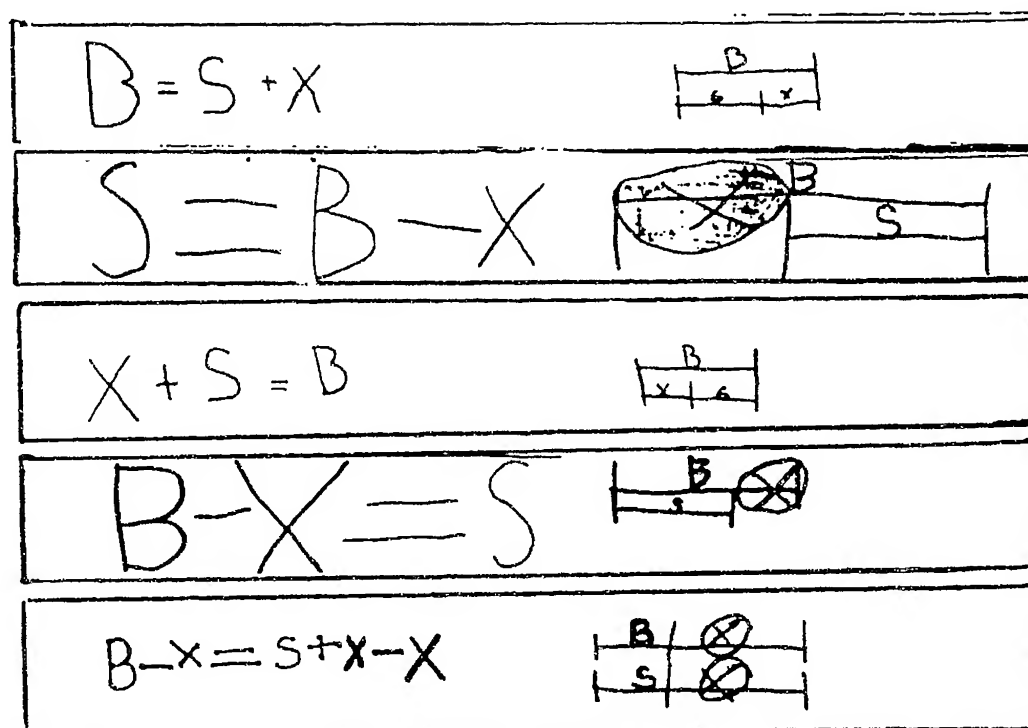 B = S + X
B
s x
S = B - X
X B
S
X + S = B
B
x s
B - X = S
B X
S
B - X = S + X - X
B X
S X